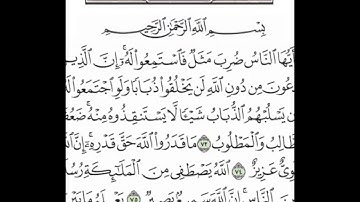 بِسْمِ ٱللَّهِ ٱلرَّحْمَٰنِ ٱلرَّحِيمِ
أَيُّهَا ٱلنَّاسُ ضُرِبَ مَثَلٌ فَٱسْتَمِعُوا۟ لَهُۥٓ ۚ إِنَّ ٱلَّذِيـ
عُونَ مِن دُونِ ٱللَّهِ لَن يَخْلُقُوا۟ ذُبَابًا وَلَوِ ٱجْتَمَعُوا۟
ن يَسْلُبْهُمُ ٱلذُّبَابُ شَيْـًٔا لَّا يَسْتَنقِذُوهُ مِنْهُ ۚ ضَعُفَ
طَالِبُ وَٱلْمَطْلُوبُ ٧٣ مَا قَدَرُوا۟ ٱللَّهَ حَقَّ قَدْرِهِۦٓ ۗ إِنَّ ٱللَّـ
وِىٌّ عَزِيزٌ ٧٤ ٱللَّهُ يَصْطَفِى مِنَ ٱلْمَلَٰٓئِكَةِ رُسُلًا
نَ ٱلنَّاسِ ۚ إِنَّ ٱللَّهَ سَمِيعٌۢ بَصِيرٌ ٧٥ يَعْلَمُ مَا بَيْنَ